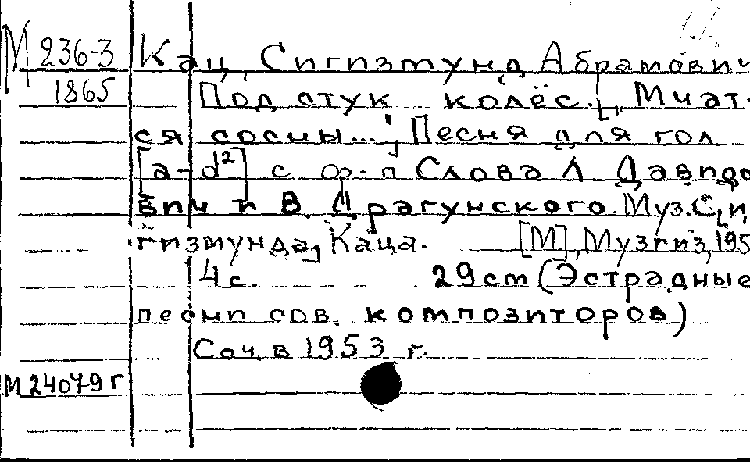 М 236-3 Кац, Сигизмунд Абрамович
1865 Под стук колёс. ["Мчат-
ся сосны..."] Песня для гол
[a-d²] с ф.-п Слова Л Давидо
вич и В. Драгунского. Муз. С[и
гизмунда] Каца. [М], Музгиз, 195
4 с. 29 см (Эстрадные
песни сов. композиторов)
Соч. в 1953 г.
М 24079 г